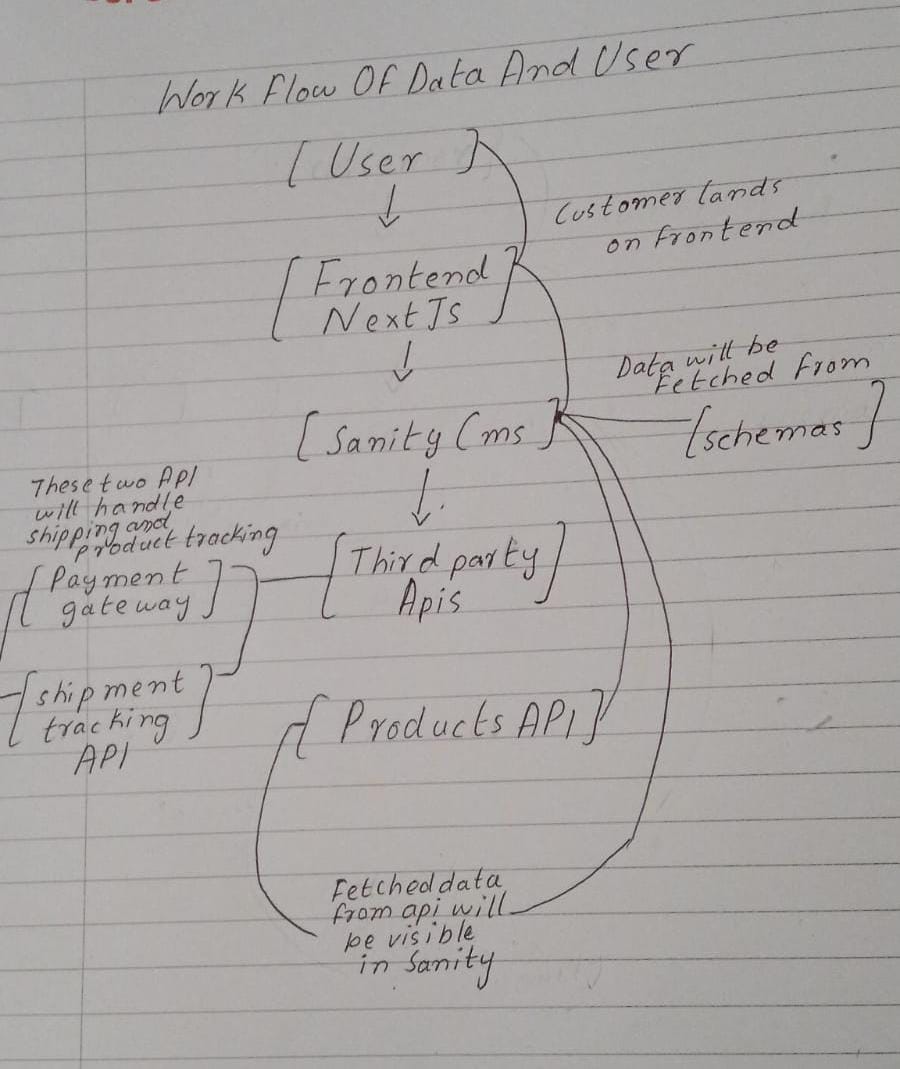 Work Flow Of Data And User
[ User ]
Customer lands
on frontend
[ Frontend
Next Js ]
Data will be
Fetched from
[ Sanity Cms ]
[schemas]
These two API
will handle
shipping and
product tracking
[ Third party
Apis ]
[ Payment
gateway ]
[ shipment
tracking
API ]
[ Products API ]
Fetched data
from api will
be visible
in Sanity